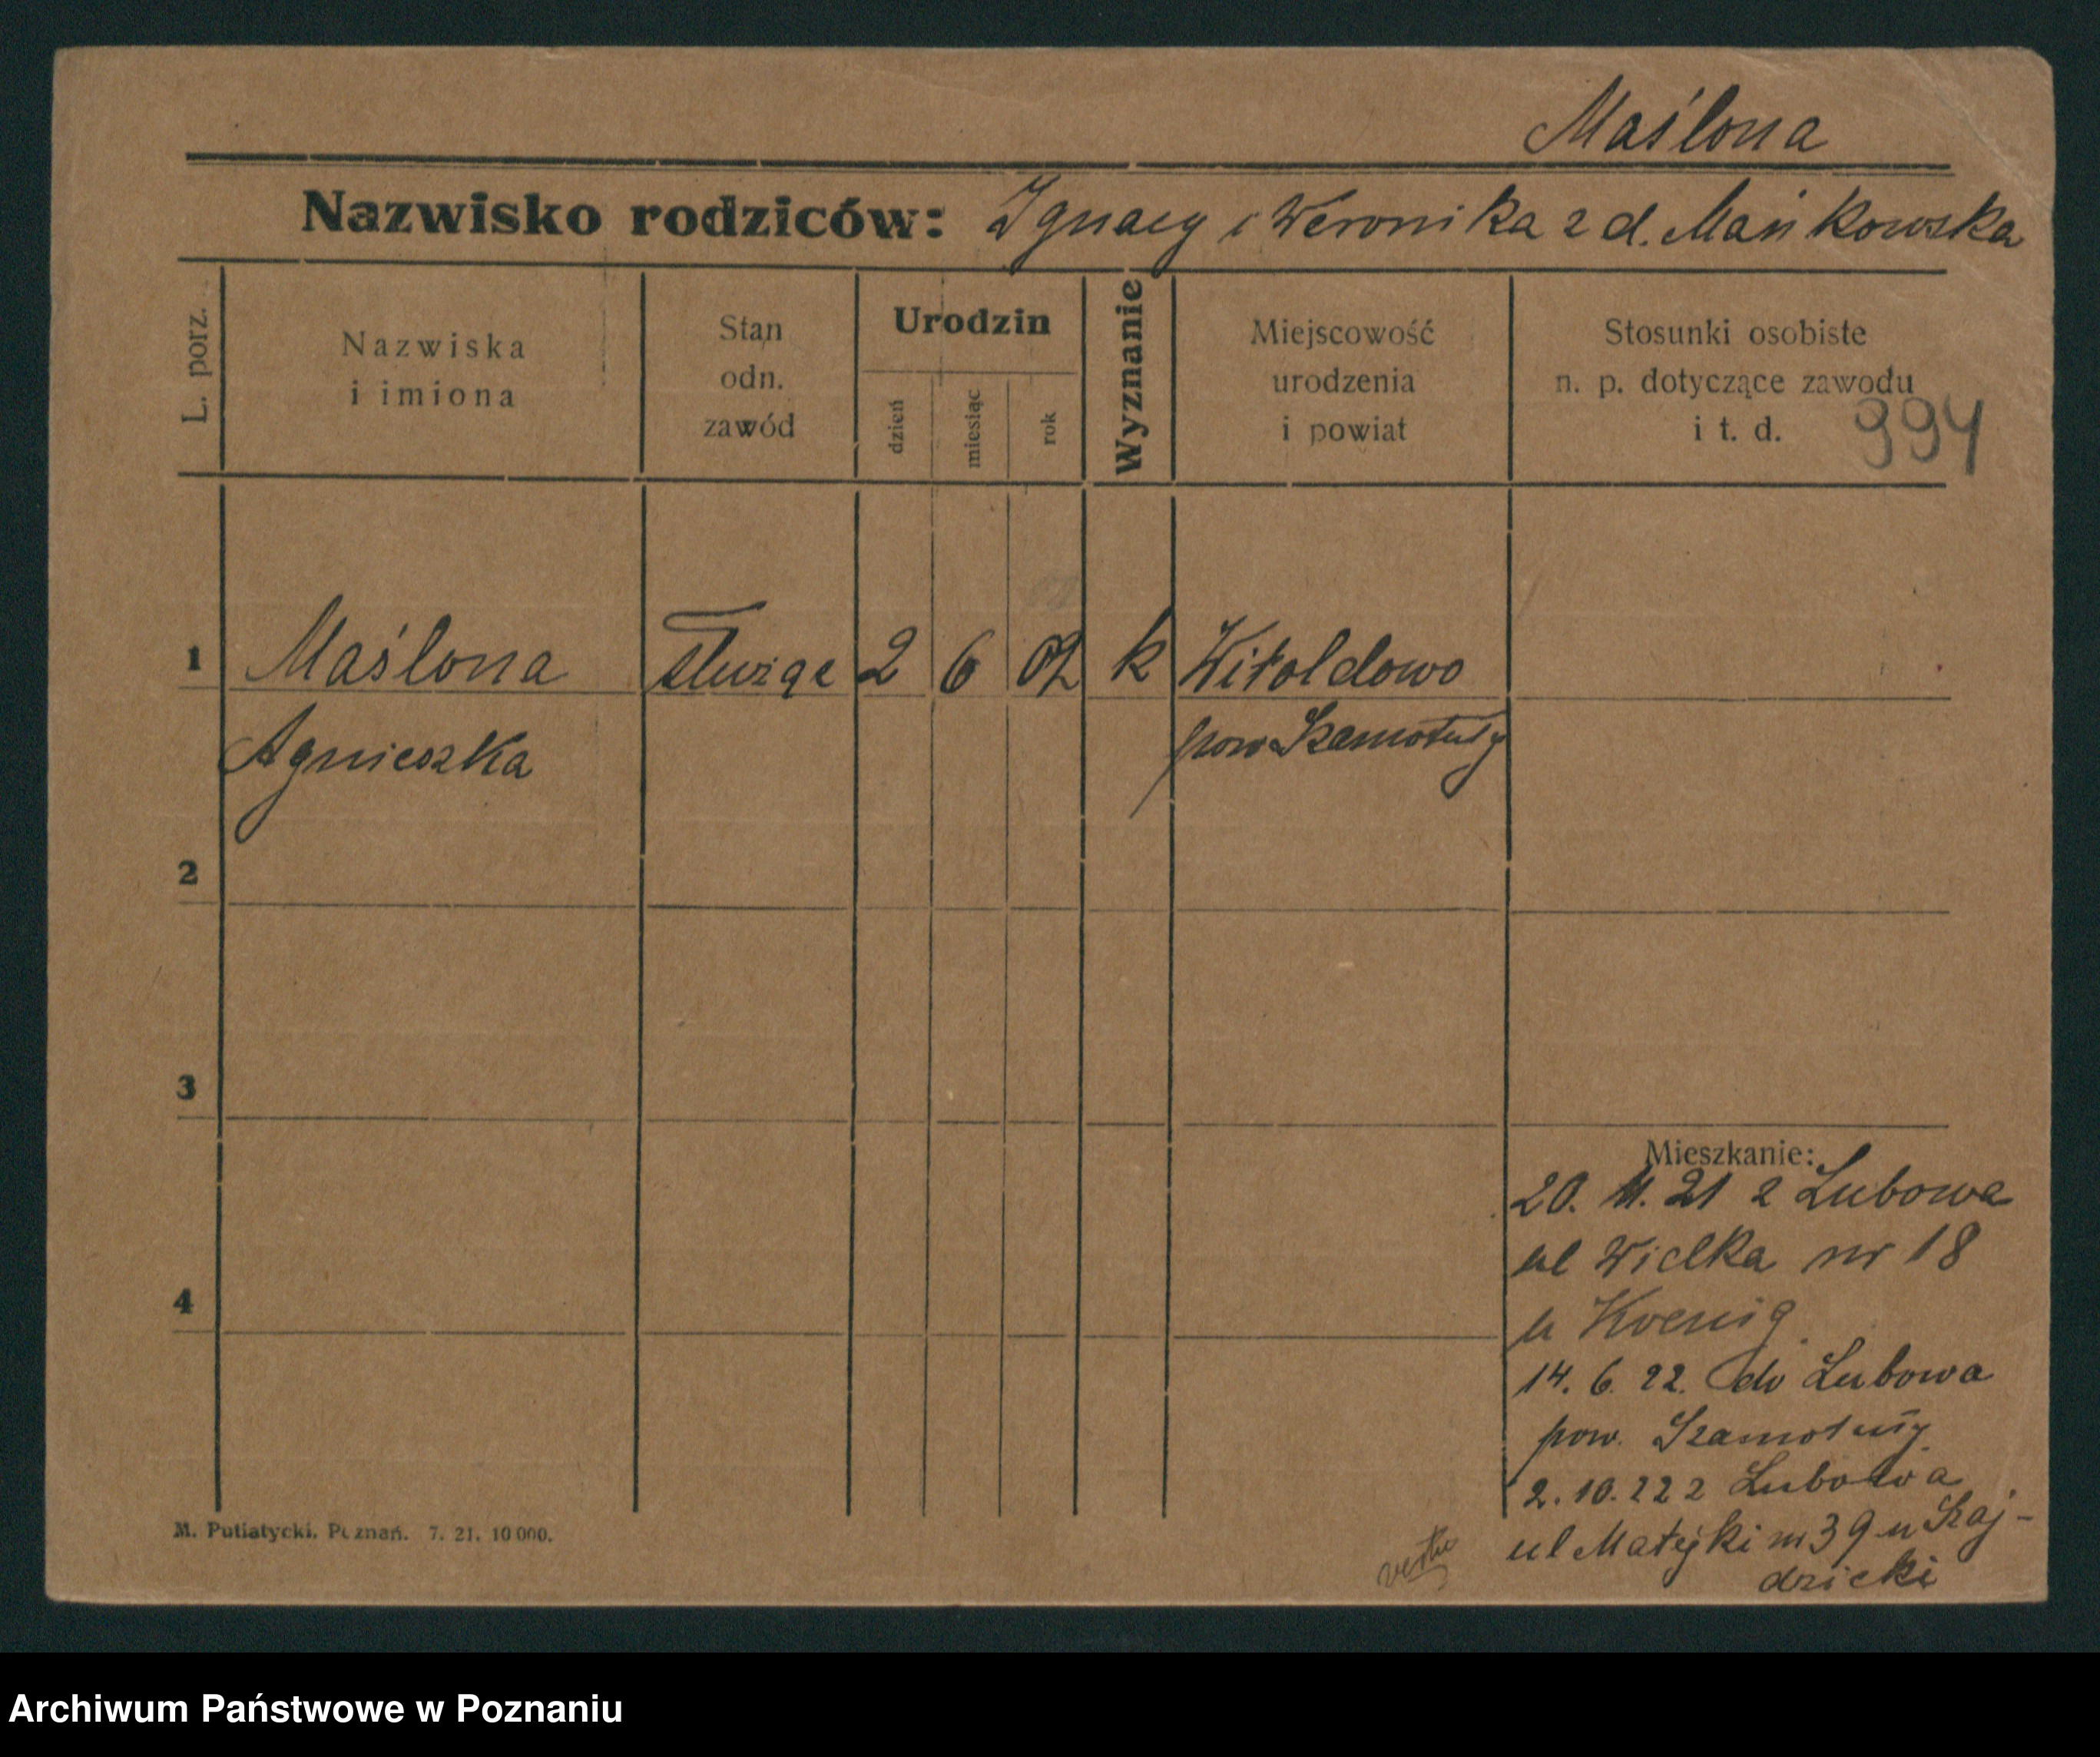 Maślona
Nazwisko rodziców: Ignacy i Weronika z d. Mańkowska
L. porz.
Nazwiska
i imiona
Stan
odn.
zawód
Urodzin
dzień
miesiąc
rok
Wyznanie
Miejscowość
urodzenia
i powiat
Stosunki osobiste
n. p. dotyczące zawodu
i t. d.
994
1 Maślona służąc 2 6 02 k Witoldowo
Agnieszka pow Szamotuły
2
3
4
Mieszkanie:
20. 11. 21 z Lubowa
ul Wielka nr 18
u Koenig
14. 6. 22. do Lubowa
pow. Szamotuły
2. 10. 22 z Lubowa
ul Matejki nr 39 u Szaj-
dzicki
M. Putiatycki. Poznań. 7. 21. 10 000.
Archiwum Państwowe w Poznaniu